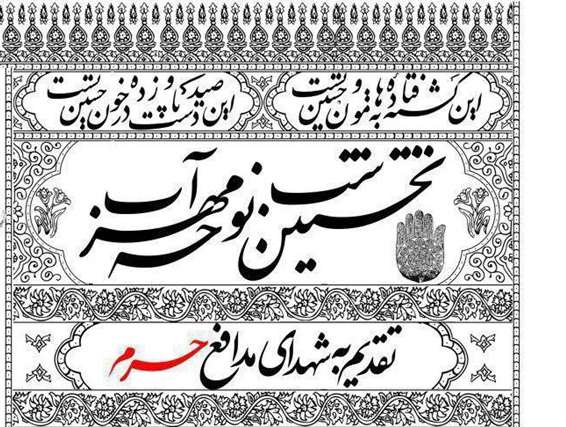 این کشته فتاده به هامون حسین توست
این صید دست و پا زده در خون حسین توست
نخستین نوحه
تقدیم به شهدای مدافع حرم